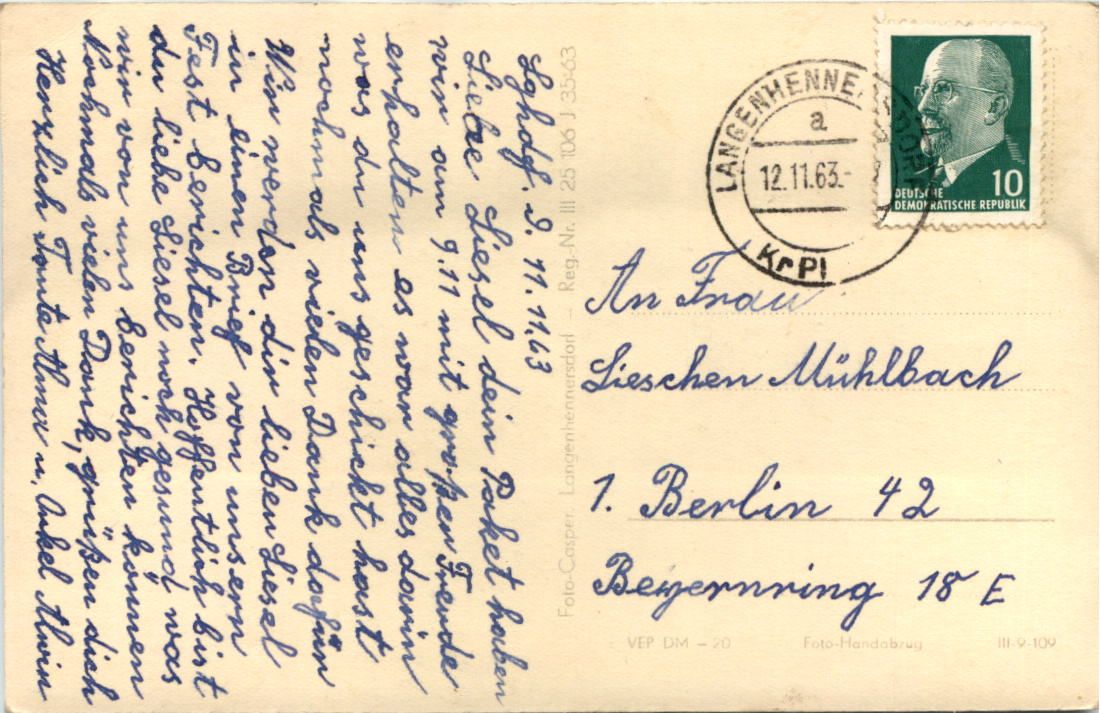 Lghdf. d. 11.11.63
Liebe Liesel dein Paket haben
wir am 9.11 mit großen Freude
erhalten es war alles darin
was du uns geschickt hast
nochmals vielen Dank dafür
Wir werden dir lieben Liesel
in einen Brief von unsern
Fest berichten. Hoffentlich bist
du liebe Liesel noch gesund was
wir von uns berichten können
Nochmals vielen Dank, grüßen dich
Herzlich Tante Alma u. Onkel Alwin
Foto-Casper, Langenhennersdorf — Reg.-Nr. III 25 106 J 35-63
LANGENHENNERSDORF
a
12.11.63.-
Kr Pl
10
DEUTSCHE
DEMOKRATISCHE REPUBLIK
An Frau
Lieschen Mühlbach
1. Berlin 42
Beyernring 18 E
VEP DM — 20 Foto-Handabzug III-9-109